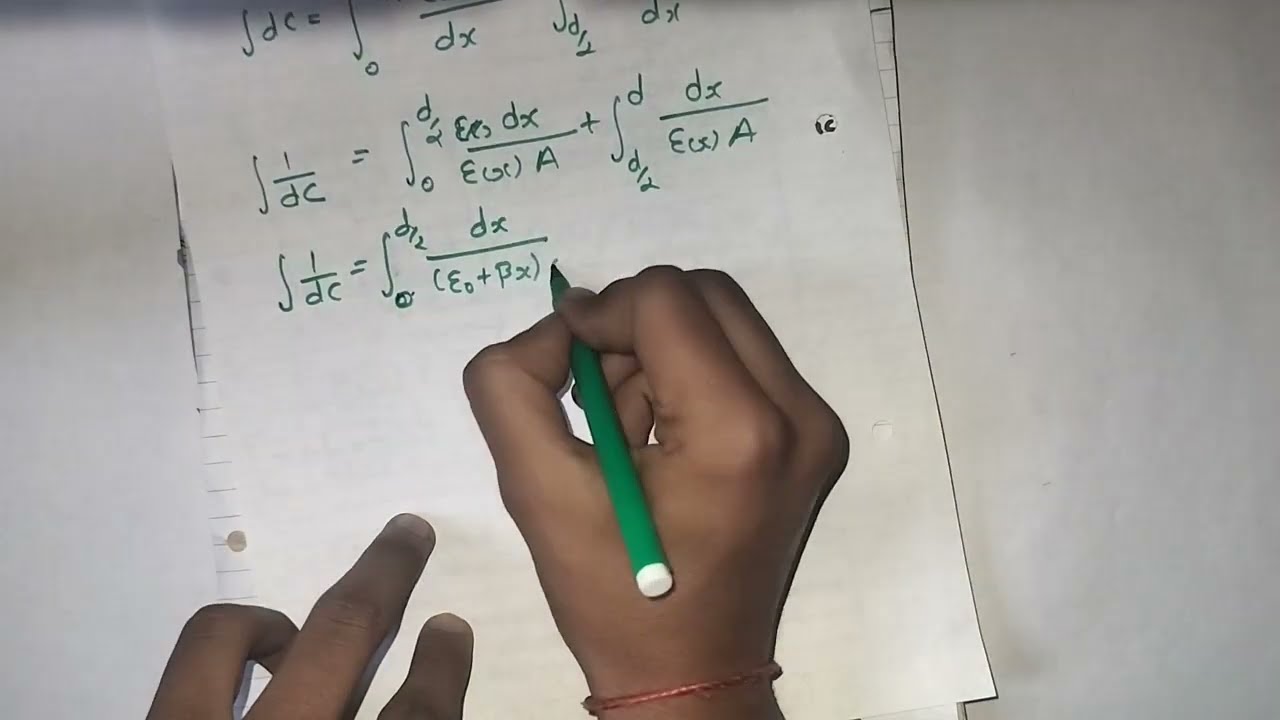 ∫dC = ∫₀ dx ∫_{d/2} dx
∫ 1/dC = ∫₀^{d/2} dx / ε(x) A + ∫_{d/2}^{d} dx / ε(x) A
∫ 1/dC = ∫₀^{d/2} dx / (ε₀ + βx)